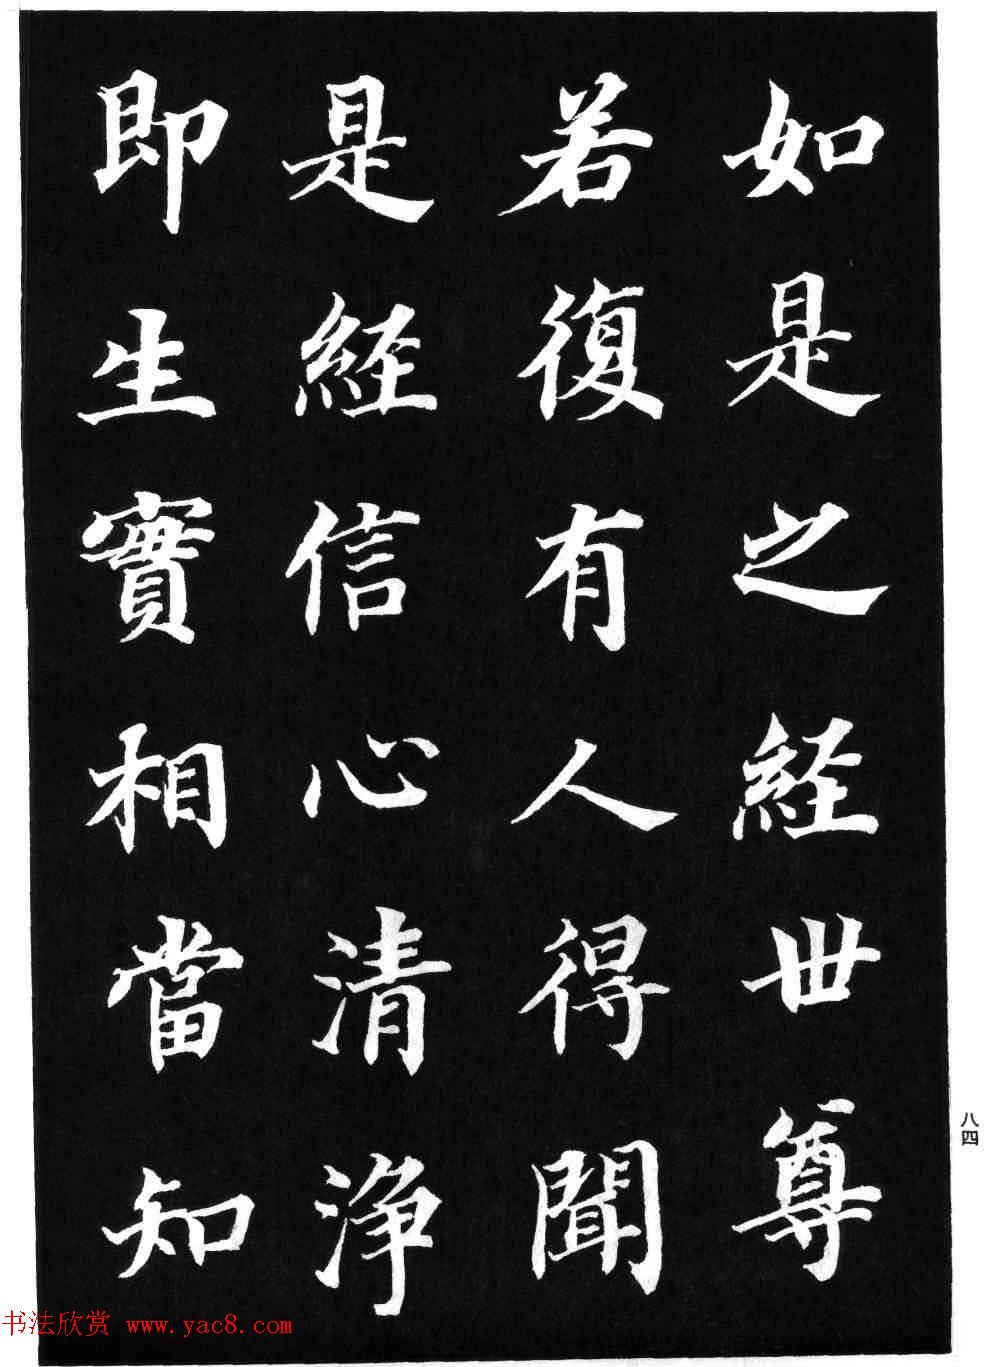 如是之経世尊
若復有人得聞
是経信心清淨
即生實相當知
八四
书法欣赏 www.yac8.com